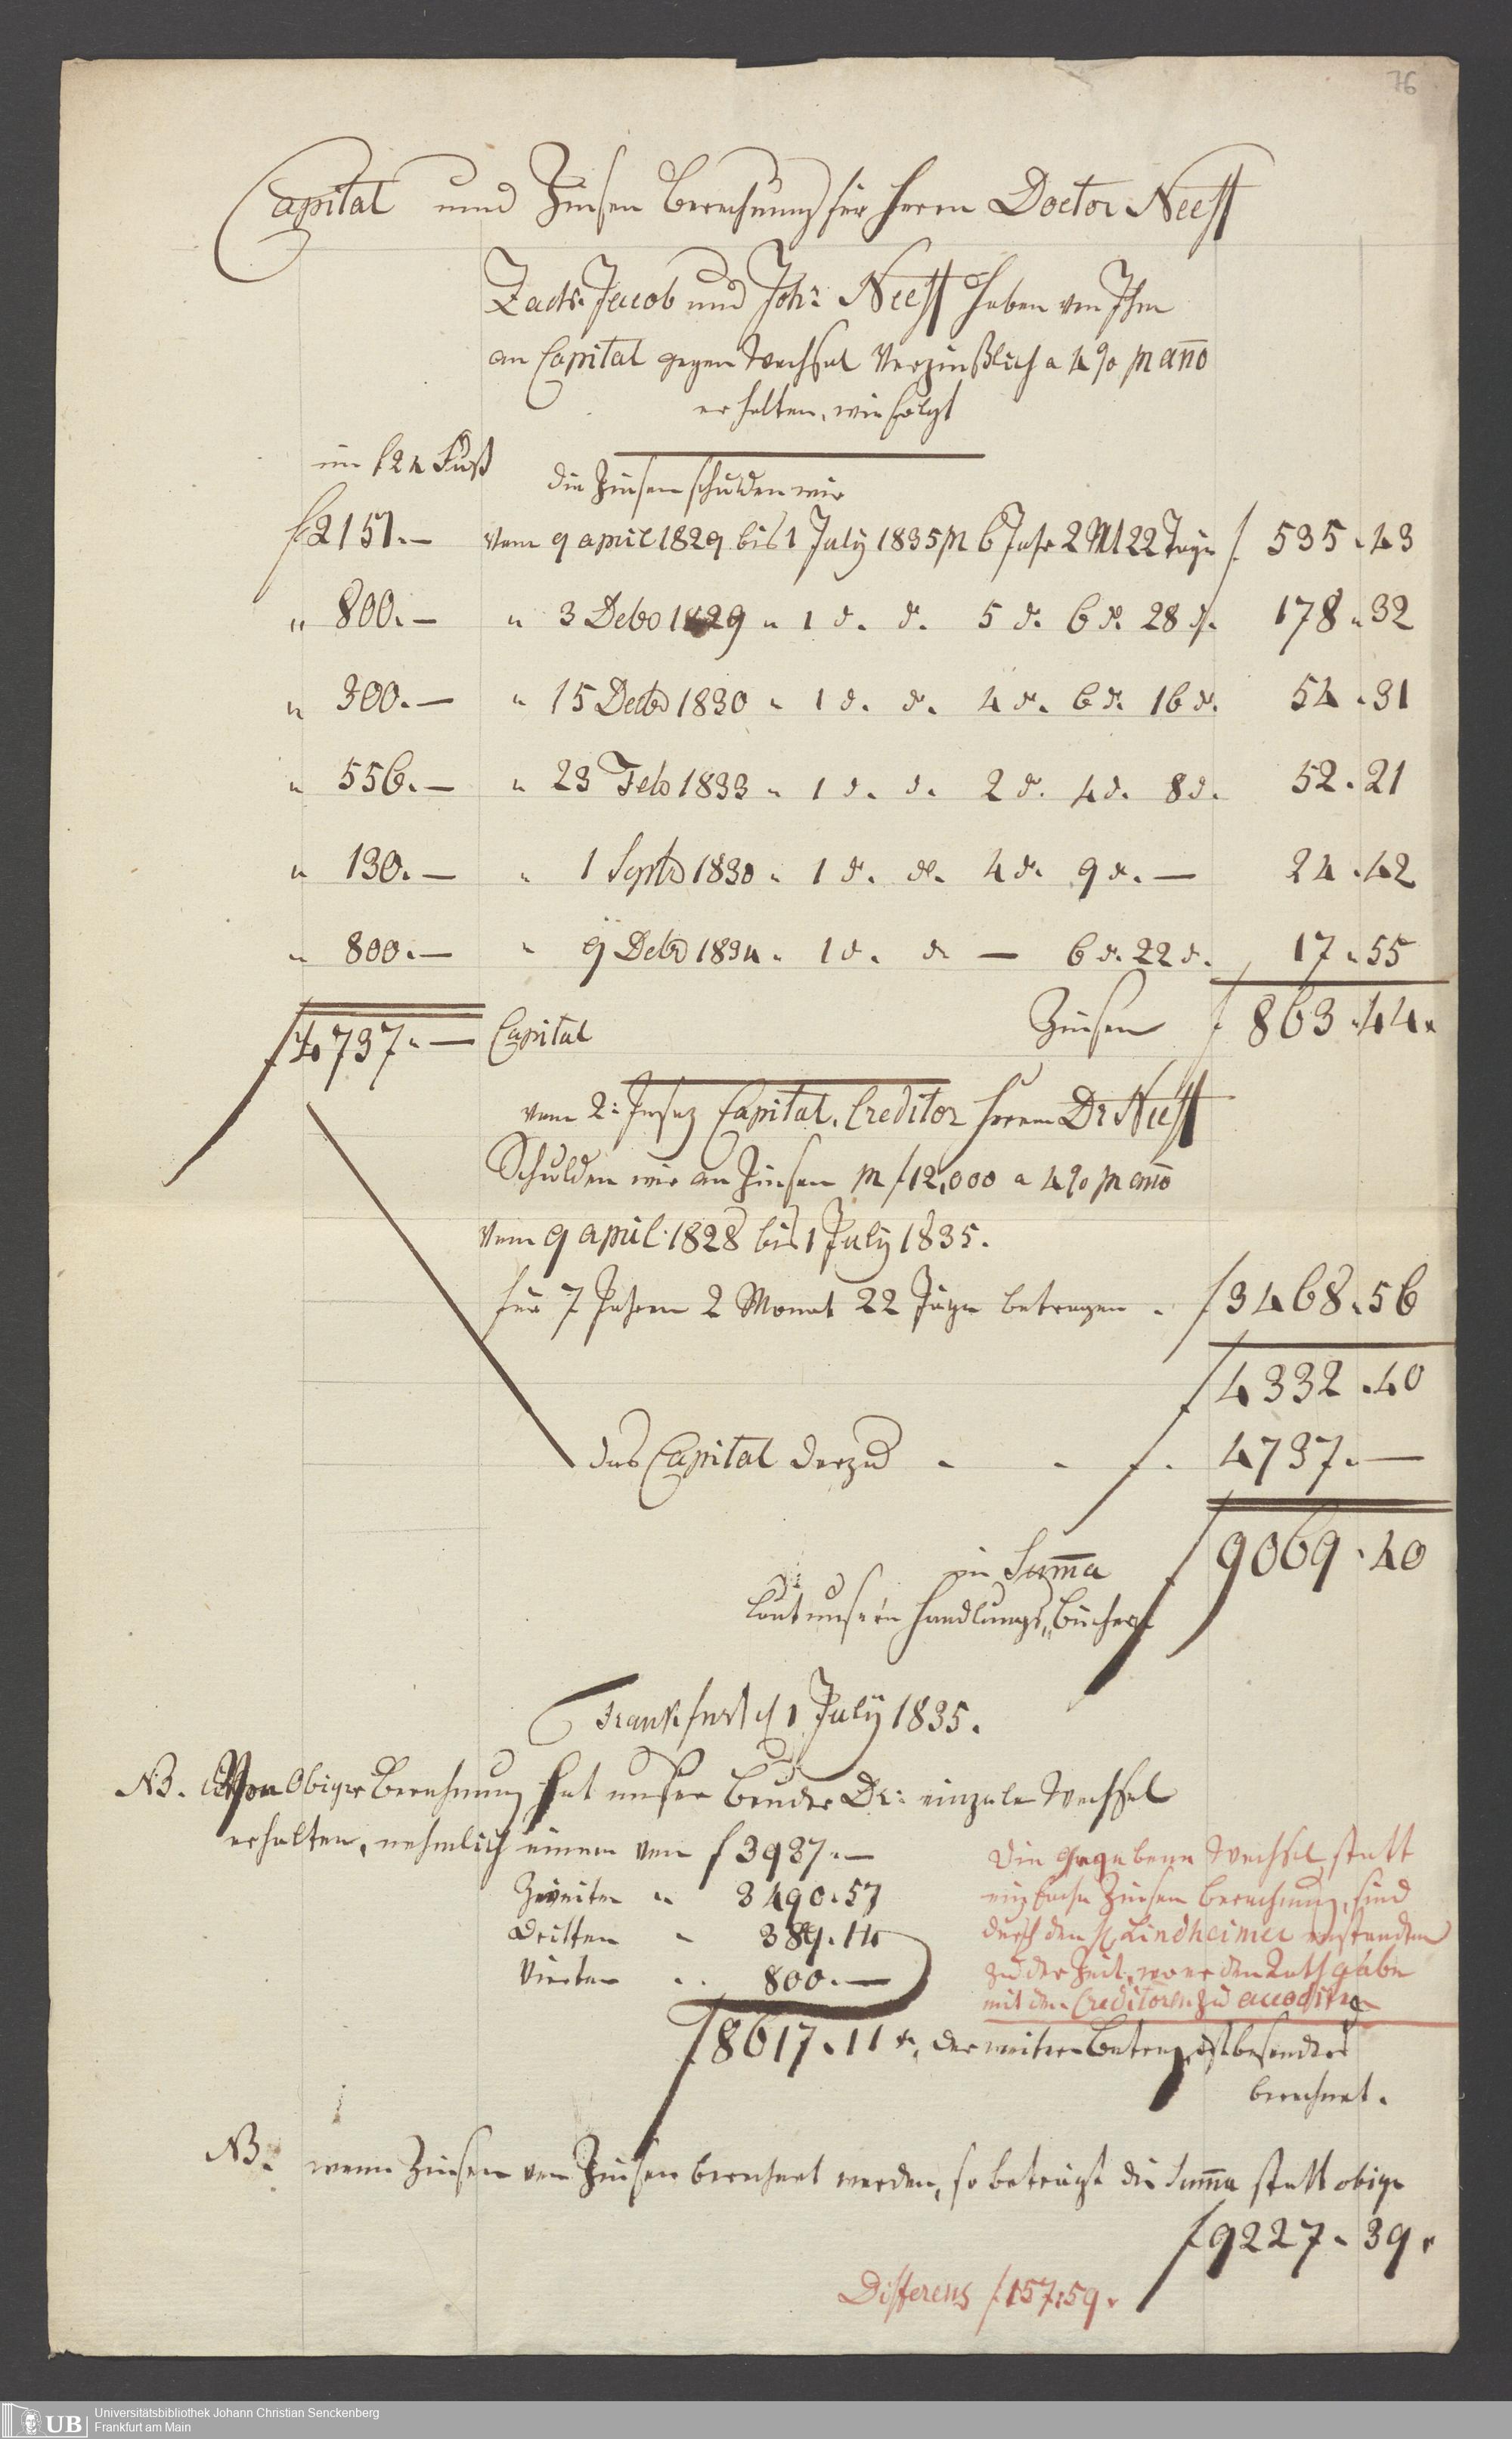 76
Capital und Zinsen Berechnung für Herrn Doctor Neeff
Zach: Jacob und Joh: Neeff haben von Ihm
an Capital gegen Wechsel Verzinßlich a 4 % p año
erhalten, wie folgt
im f 24 Fuß die Zinsen schulden wir
f 2151.— vom 9 april 1829 bis 1 July 1835 p 6 Jahr 2 Mt 22 Tage f. 535.43
" 800.— " 3 Debo 1829 " 1 d. d. 5 d. 6 d. 28 d. 178.32
" 300.— " 15 Decbo 1830 " 1 d. d. 4 d. 6 d. 16 d. 54.31
" 556.— " 23 Feb 1833 " 1 d. d. 2 d. 4 d. 8 d. 52.21
" 130.— " 1 Septb 1830 " 1 d. d. 4 d. 9 d. — 24.42
" 800.— " 9 Debo 1834 " 1 d. d. — 6 d. 22 d. 17.55
f 4737.— Capital Zinsen f 863.44
vom 2: Capital. Creditor Herrn Dr Neeff
Schulden wir an Zinsen p f 12,000 a 4 % p año
vom 9 april 1828 bis 1 July 1835.
für 7 Jahren 2 Monat 22 Tage betragen . f 3468.56
f 4332.40
das Capital darzu - - f. 4737.—
in Suma f 9069.40
laut unsern Handlungs„Bücher
Frankfurt d 1 July 1835.
NB. Von Obiger Berechnung hat unser Bruder Dr: einzele Wechsel
erhalten, nehmlich einen von f 3937.—
Zweiten " 3490.57
Dritten " 389.14
Vierten " 800.—
f 8617.11 x, der weitere Betrag ist besonders
berechnet.
Die gegebene Wechsel statt
einfache Zinsen Berechnung, sind
durch den H. Lindheimer entstanden
zu der Zeit, wo er den Rath gabe
mit den Creditoren zu accodire
NB. wenn Zinsen von Zinsen berechnet werden, so beträgt die Suma statt obige
f 9227.39
Differens f 157:59.
UB Universitätsbibliothek Johann Christian Senckenberg
Frankfurt am Main